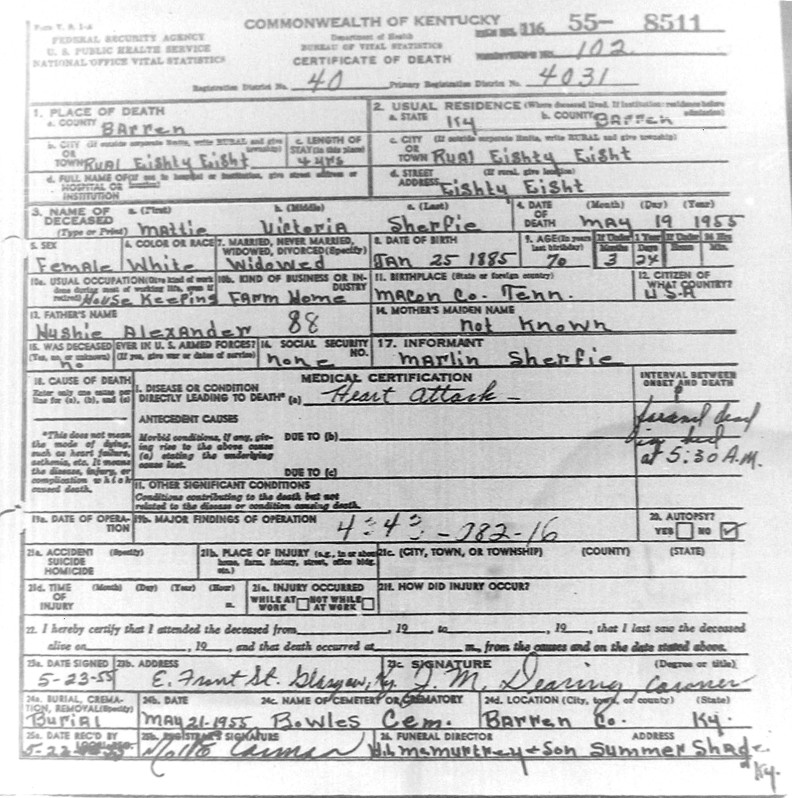 Form V. S. 1-A
COMMONWEALTH OF KENTUCKY
116 55- 8511
FEDERAL SECURITY AGENCY
U. S. PUBLIC HEALTH SERVICE
NATIONAL OFFICE VITAL STATISTICS
Department of Health
BUREAU OF VITAL STATISTICS
CERTIFICATE OF DEATH
102
Registration District No. 40 Primary Registration District No. 4031
1. PLACE OF DEATH
a. COUNTY Barren
2. USUAL RESIDENCE (Where deceased lived. If institution: residence before admission)
a. STATE Ky b. COUNTY Barren
b. CITY (If outside corporate limits, write RURAL and give township)
OR TOWN Rual Eishty Eisht
c. LENGTH OF STAY (in this place) 4 yrs
c. CITY (If outside corporate limits, write RURAL and give township)
OR TOWN Rual Eishty Eisht
d. FULL NAME OF (If not in hospital or institution, give street address or location)
HOSPITAL OR INSTITUTION
d. STREET (If rural, give location)
ADDRESS Eishty Eisht
3. NAME OF DECEASED (Type or Print)
a. (First) Mattie b. (Middle) Victoria c. (Last) Sherfie
4. DATE OF DEATH (Month) (Day) (Year) May 19 1955
5. SEX Female
6. COLOR OR RACE White
7. MARRIED, NEVER MARRIED, WIDOWED, DIVORCED (Specify) Widowed
8. DATE OF BIRTH Jan 25 1885
9. AGE (In years last birthday) 70
If Under 1 Year Months 3 Days 24 If Under 24 Hrs. Hours Min.
10a. USUAL OCCUPATION (Give kind of work done during most of working life, even if retired) House Keeping
10b. KIND OF BUSINESS OR INDUSTRY Farm Home
11. BIRTHPLACE (State or foreign country) Macon Co. Tenn.
12. CITIZEN OF WHAT COUNTRY? U S A
13. FATHER'S NAME Hushie Alexander 88
14. MOTHER'S MAIDEN NAME not Known
15. WAS DECEASED EVER IN U. S. ARMED FORCES?
(Yes, no, or unknown) (If yes, give war or dates of service) no
16. SOCIAL SECURITY NO. none
17. INFORMANT Marlin Sherfie
18. CAUSE OF DEATH
Enter only one cause per line for (a), (b), and (c)
MEDICAL CERTIFICATION
INTERVAL BETWEEN ONSET AND DEATH
I. DISEASE OR CONDITION DIRECTLY LEADING TO DEATH* (a) Heart attack
found dead in bed at 5:30 A.M.
*This does not mean the mode of dying, such as heart failure, asthenia, etc. It means the disease, injury, or complication which caused death.
ANTECEDENT CAUSES
Morbid conditions, if any, giving rise to the above cause (a) stating the underlying cause last.
DUE TO (b)
DUE TO (c)
II. OTHER SIGNIFICANT CONDITIONS
Conditions contributing to the death but not related to the disease or condition causing death.
19a. DATE OF OPERATION
19b. MAJOR FINDINGS OF OPERATION
-082-16
20. AUTOPSY?
YES NO
21a. ACCIDENT SUICIDE HOMICIDE (Specify)
21b. PLACE OF INJURY (e.g., in or about home, farm, factory, street, office bldg. etc.)
21c. (CITY, TOWN, OR TOWNSHIP) (COUNTY) (STATE)
21d. TIME OF INJURY (Month) (Day) (Year) (Hour) m.
21e. INJURY OCCURRED
WHILE AT WORK NOT WHILE AT WORK
21f. HOW DID INJURY OCCUR?
22. I hereby certify that I attended the deceased from , 19 , to , 19 , that I last saw the deceased
alive on , 19 , and that death occurred at m., from the causes and on the date stated above.
23a. DATE SIGNED 5-23-55
23b. ADDRESS E. Front St. Glasgow, Ky.
23c. SIGNATURE (Degree or title) J. M. Dearing Coroner
24a. BURIAL, CREMATION, REMOVAL (Specify) Burial
24b. DATE May 21-1955
24c. NAME OF CEMETERY OR CREMATORY Bowles Cem.
24d. LOCATION (City, town, or county) (State) Barren Co. Ky.
25a. DATE REC'D BY LOCAL REG. 5-22-55
25b. REGISTRAR'S SIGNATURE
26. FUNERAL DIRECTOR ADDRESS
McMurtrey & Son Summer Shade Ky.